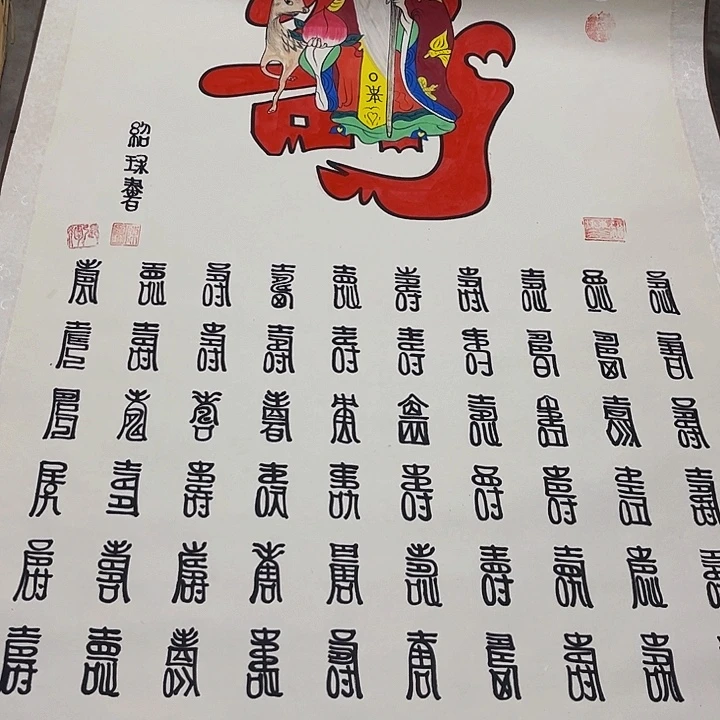 紹球書
壽壽壽壽壽壽壽壽壽壽
壽壽壽壽壽壽壽壽壽壽
壽壽壽壽壽壽壽壽壽壽
壽壽壽壽壽壽壽壽壽壽
壽壽壽壽壽壽壽壽壽壽
壽壽壽壽壽壽壽壽壽